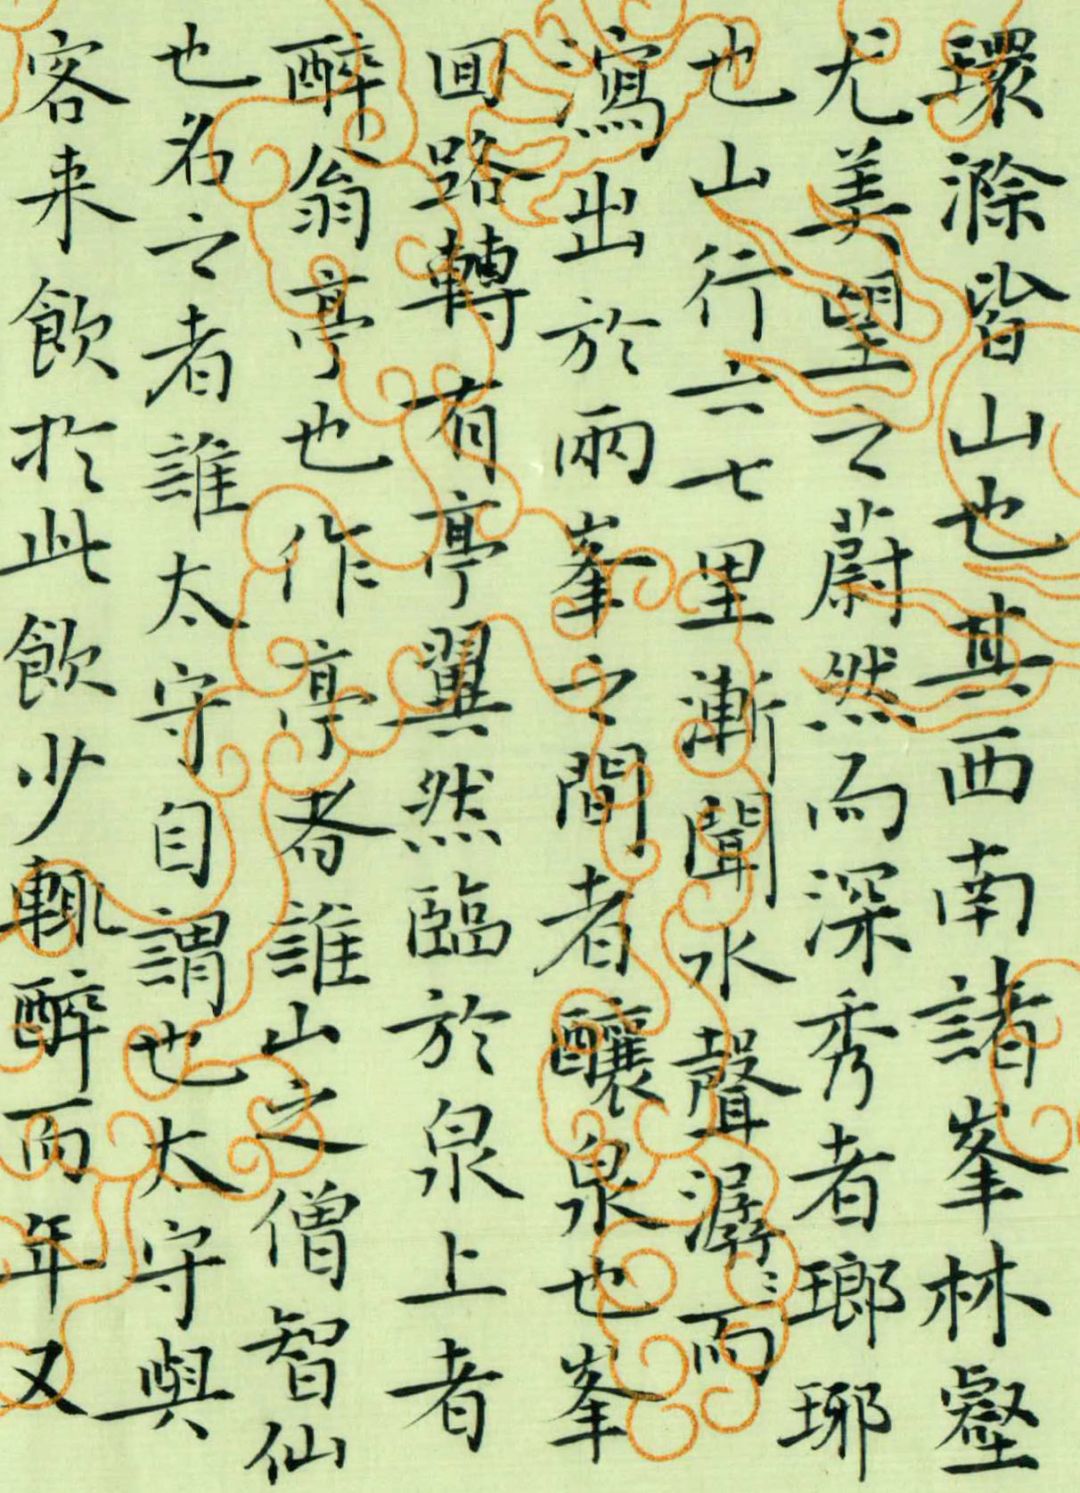 環滁皆山也其西南諸峯林壑
尤美望之蔚然而深秀者瑯琊
也山行六七里漸聞水聲潺〻而
瀉出於兩峯之間者釀泉也峯
回路轉有亭翼然臨於泉上者
醉翁亭也作亭者誰山之僧智仙
也名之者誰太守自謂也太守與
客来飲於此飲少輒醉而年又